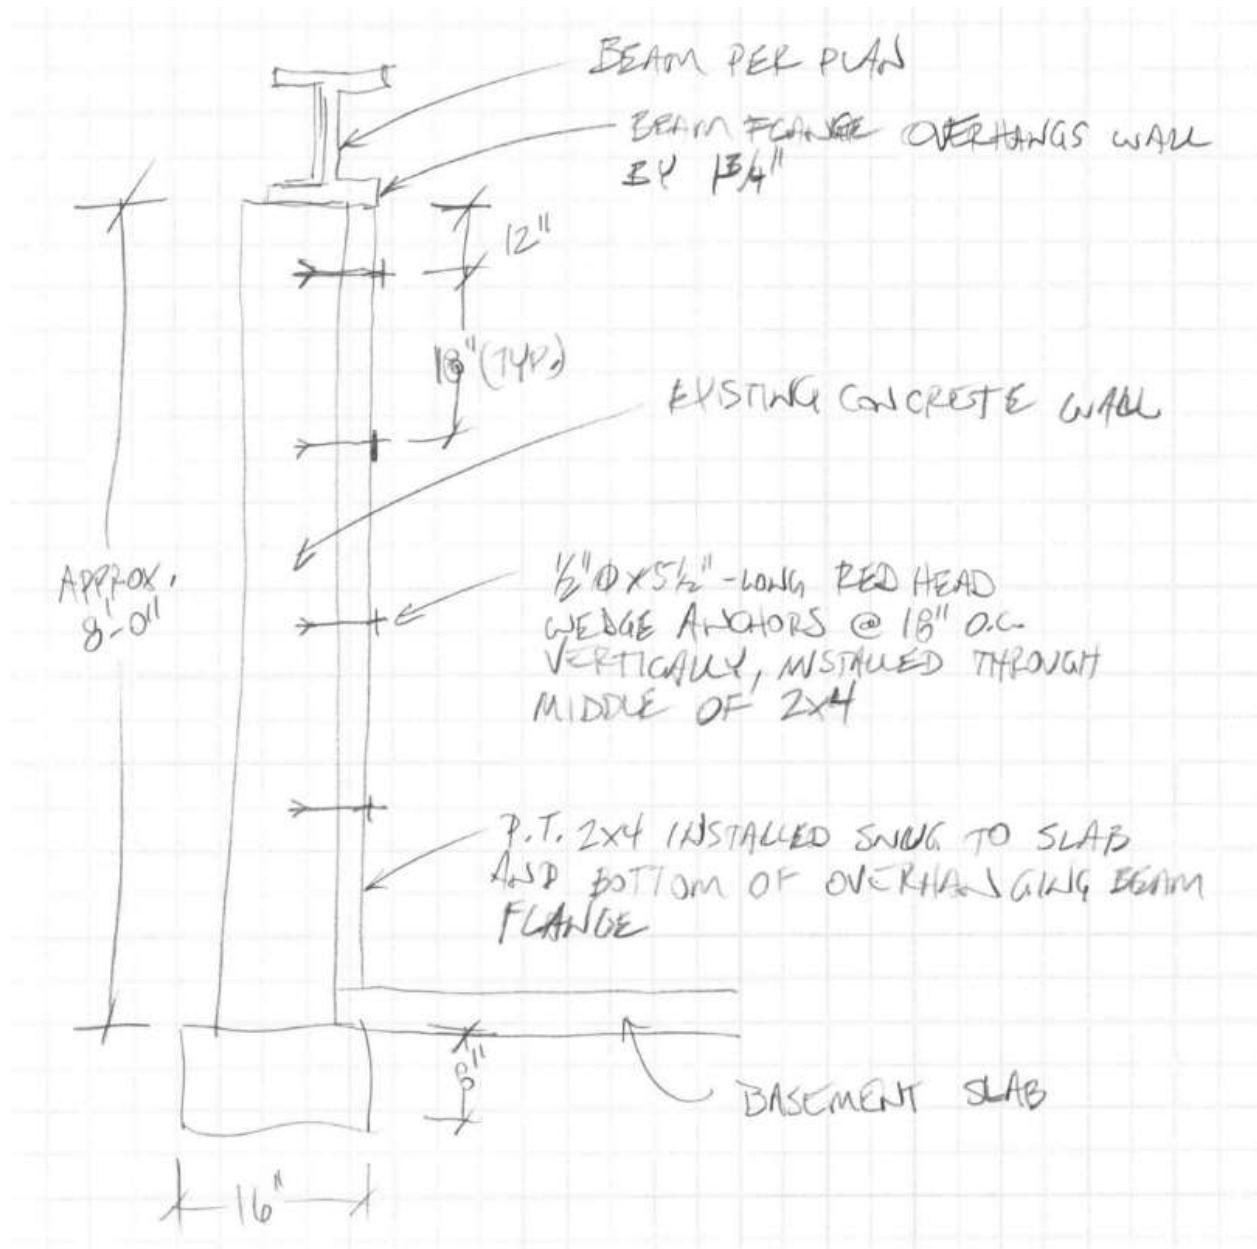 BEAM PER PLAN
BEAM FLANGE OVERHANGS WALL
BY 1 3/4"
12"
18" (TYP.)
EXISTING CONCRETE WALL
APPROX.
8'-0"
1/2"Ø x 5 1/2" - LONG RED HEAD
WEDGE ANCHORS @ 18" O.C.
VERTICALLY, INSTALLED THROUGH
MIDDLE OF 2x4
P.T. 2x4 INSTALLED SNUG TO SLAB
AND BOTTOM OF OVERHANGING BEAM
FLANGE
8"
BASEMENT SLAB
16"